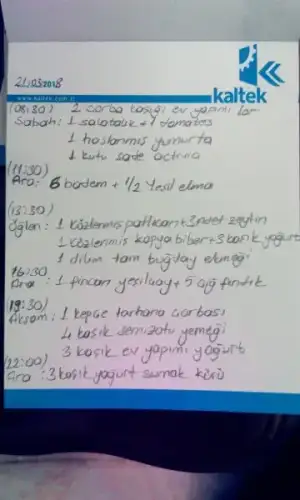 21/03/2018
kaltek
www.kaltek.com.tr
(08:30) 2 çorba kaşığı ev yapımı lor
Sabah: 1 salatalık + 1 domates
1 haşlanmış yumurta
1 kutu sade activia
(11:30)
Ara: 6 badem + 1/2 yeşil elma
(13:30)
Öğlen: 1 közlenmiş patlıcan + 3 adet zeytin
1 közlenmiş kapya biber + 3 kaşık yoğurt
1 dilim tam buğday ekmeği
16:30
Ara: 1 fincan yeşilçay + 5 çiğ fındık
19:30/
Akşam: 1 kepçe tarhana çorbası
4 kaşık semizotu yemeği
3 kaşık ev yapımı yoğurt
(22:00)
Ara: 3 kaşık yoğurt sumak kürü